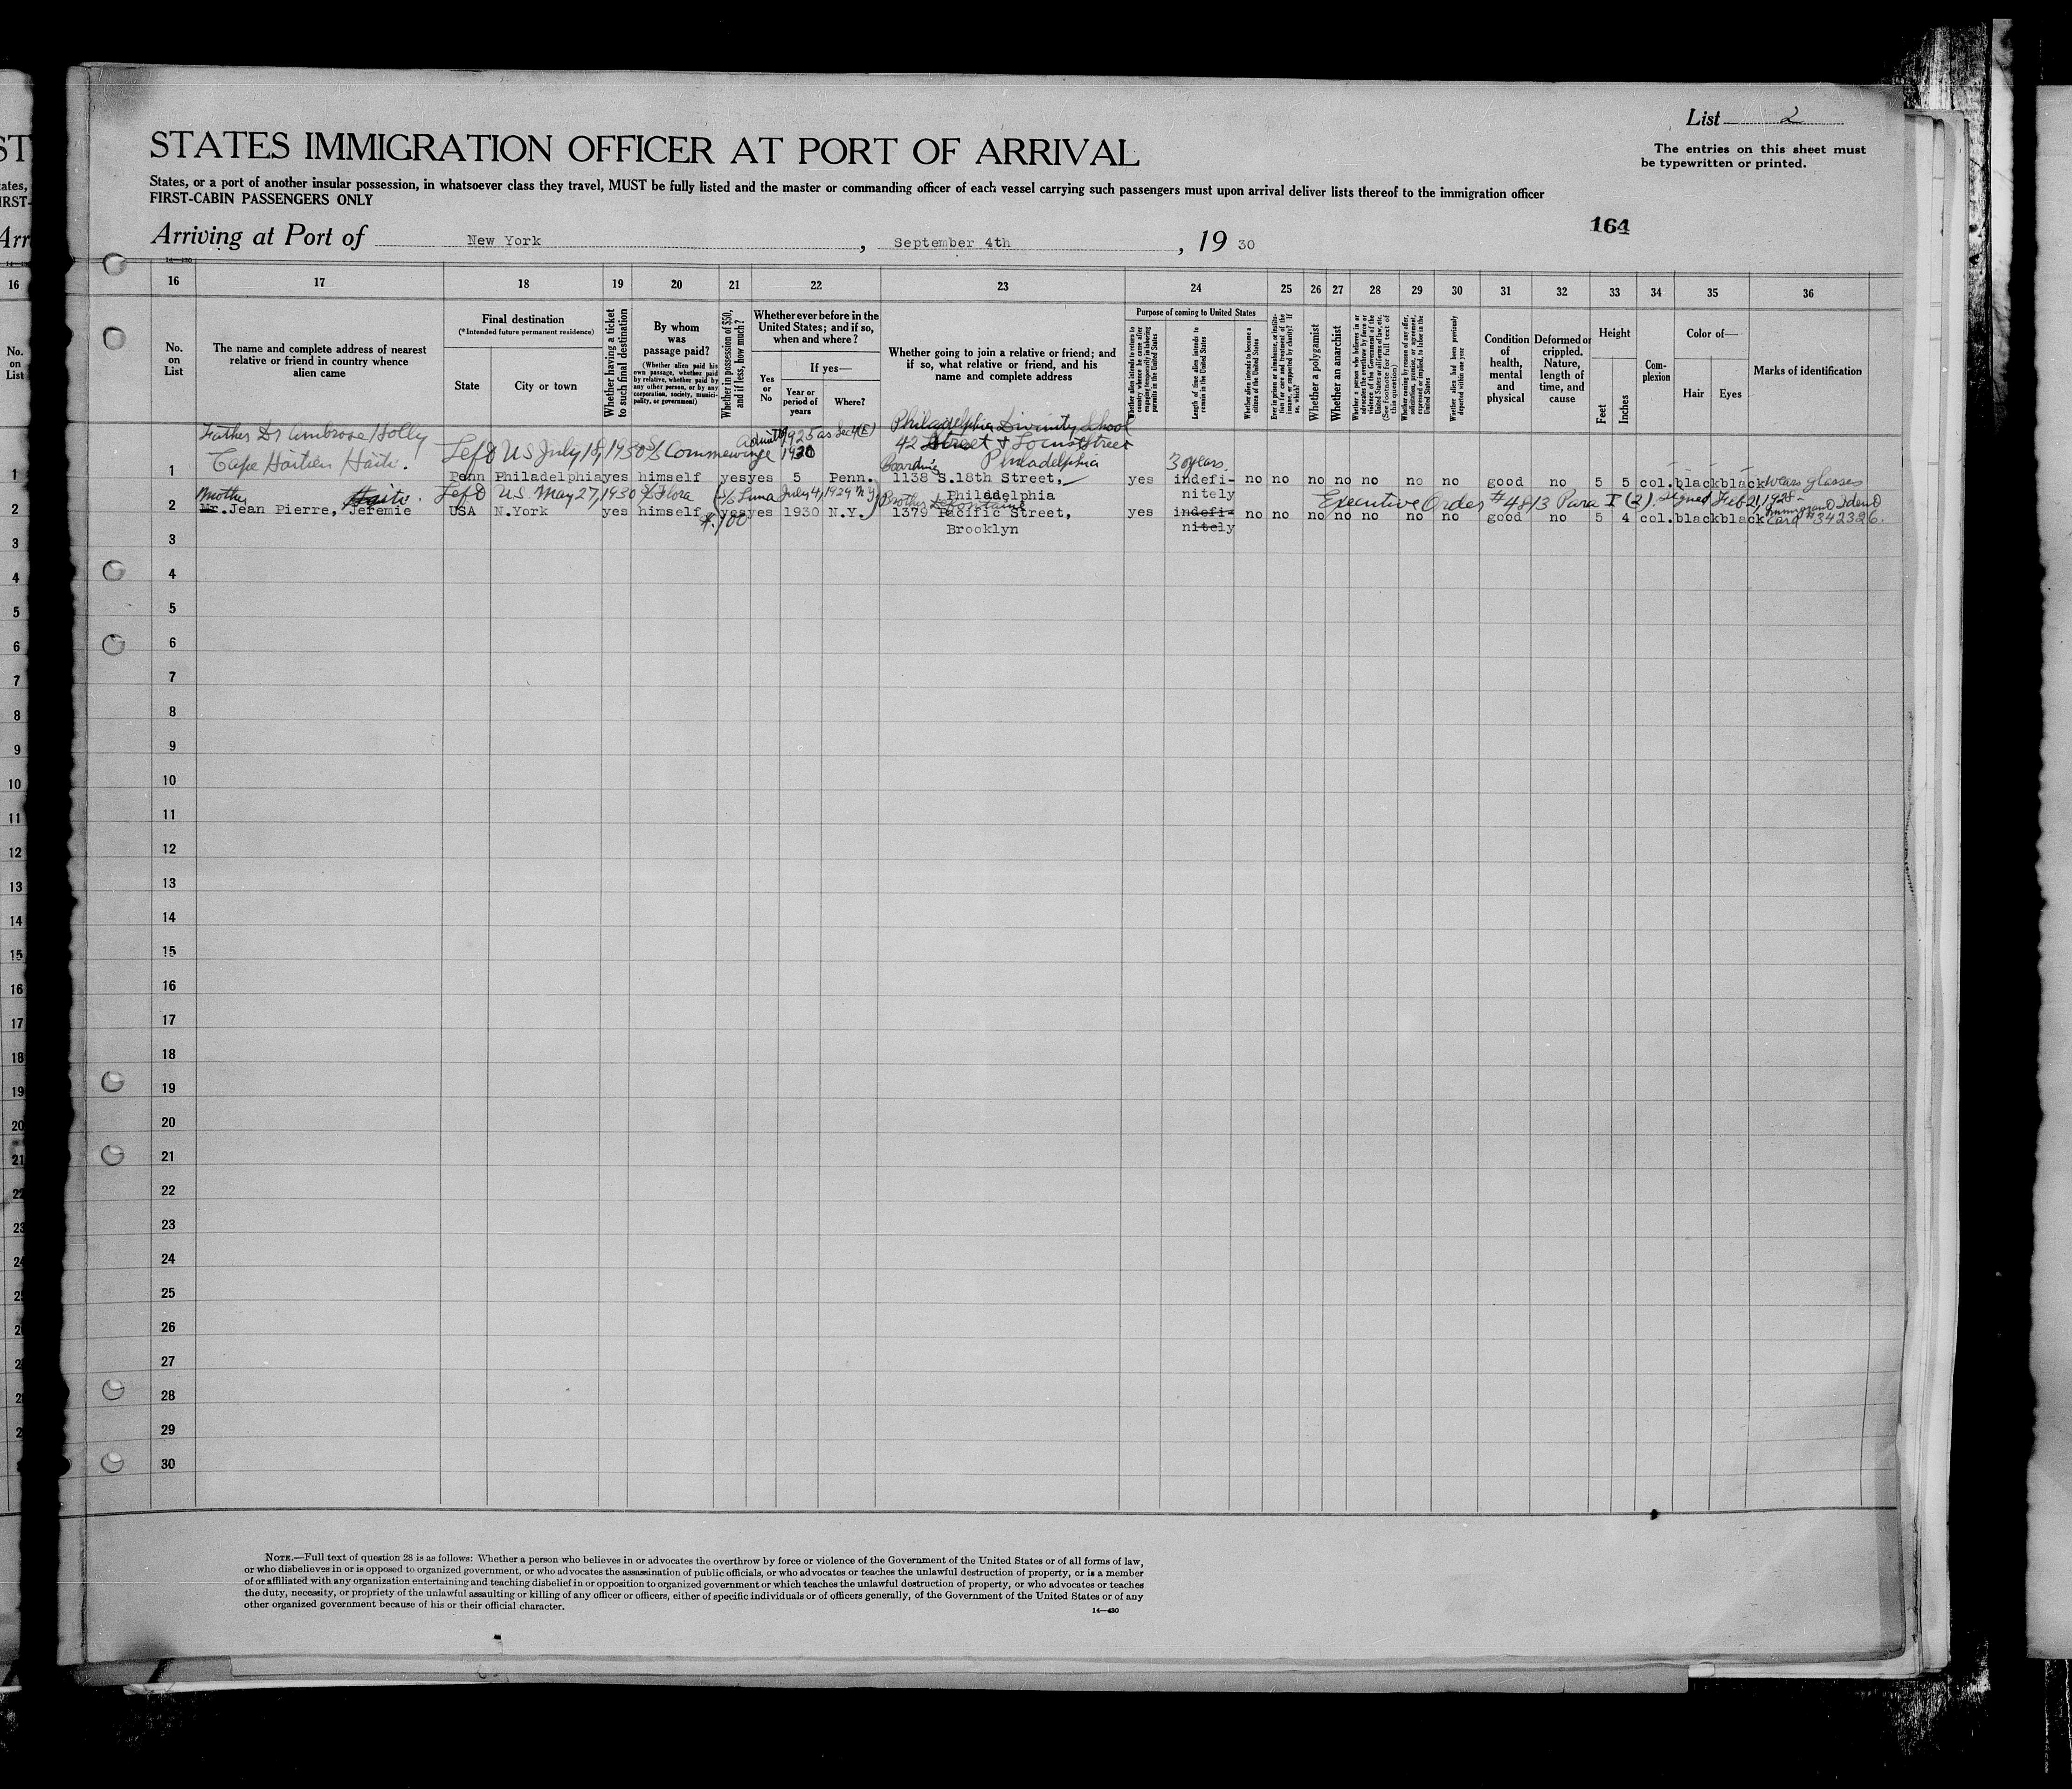 List 2
The entries on this sheet must
be typewritten or printed.
STATES IMMIGRATION OFFICER AT PORT OF ARRIVAL
States, or a port of another insular possession, in whatsoever class they travel, MUST be fully listed and the master or commanding officer of each vessel carrying such passengers must upon arrival deliver lists thereof to the immigration officer
FIRST-CABIN PASSENGERS ONLY
164
Arriving at Port of New York , September 4th , 19 30
14—430
16 17 18 19 20 21 22 23 24 25 26 27 28 29 30 31 32 33 34 35 36
No. on List
The name and complete address of nearest
relative or friend in country whence
alien came
Final destination
(*Intended future permanent residence)
State
City or town
Whether having a ticket to such final destination
By whom
was
passage paid?
(Whether alien paid his
own passage, whether paid
by relative, whether paid by
any other person, or by any
corporation, society, munici-
pality, or government)
Whether in possession of $50, and if less, how much?
Whether ever before in the
United States; and if so,
when and where?
Yes or No
If yes—
Year or period of years
Where?
Whether going to join a relative or friend; and
if so, what relative or friend, and his
name and complete address
Purpose of coming to United States
Whether alien intends to return to country whence he came after engaging temporarily in laboring pursuits in the United States
Length of time alien intends to remain in the United States
Whether alien intends to become a citizen of the United States
Ever in prison or almshouse, or institution for care and treatment of the insane, or supported by charity? If so, which?
Whether a polygamist
Whether an anarchist
Whether a person who believes in or advocates the overthrow by force or violence of the Government of the United States or all forms of law, etc. (See footnote for full text of this question)
Whether coming by reason of any offer, solicitation, promise, or agreement, expressed or implied, to labor in the United States
Whether alien had been previously deported within one year
Condition of health, mental and physical
Deformed or crippled. Nature, length of time, and cause
Height
Feet
Inches
Complexion
Color of—
Hair
Eyes
Marks of identification
Father Dr Ambrose Holly
Cape Haitien Haiti.
Left US July 18, 1930 S/S Commewinge
Admitted 1925 as Sec 4(E)
1930
Philadelphia Divinity School
42 Street & Locust Street
Philadelphia
Boarding
3 years.
1 Penn Philadelphia yes himself yes yes 5 Penn. 1138 S.18th Street, yes indefi- no no no no no no no good no 5 5 col. black black wears glasses
Philadelphia nitely
Mother Haiti. Left US May 27, 1930 S/S Flora S/S Luna July 4, 1929 NY Brother
Executive Order #4813 Para I (2). Signed Feb 21, 1928-
2 Mr. Jean Pierre, Jeremie USA N.York yes himself yes yes 1930 N.Y. 1379 Pacific Street, yes indefi- no no no no no no no good no 5 4 col. black black Immigrant Ident Card #342326.
$100 Brooklyn nitely
3
4
5
6
7
8
9
10
11
12
13
14
15
16
17
18
19
20
21
22
23
24
25
26
27
28
29
30
NOTE.—Full text of question 28 is as follows: Whether a person who believes in or advocates the overthrow by force or violence of the Government of the United States or of all forms of law,
or who disbelieves in or is opposed to organized government, or who advocates the assassination of public officials, or who advocates or teaches the unlawful destruction of property, or is a member
of or affiliated with any organization entertaining and teaching disbelief in or opposition to organized government or which teaches the unlawful destruction of property, or who advocates or teaches
the duty, necessity, or propriety of the unlawful assaulting or killing of any officer or officers, either of specific individuals or of officers generally, of the Government of the United States or of any
other organized government because of his or their official character.
14—430